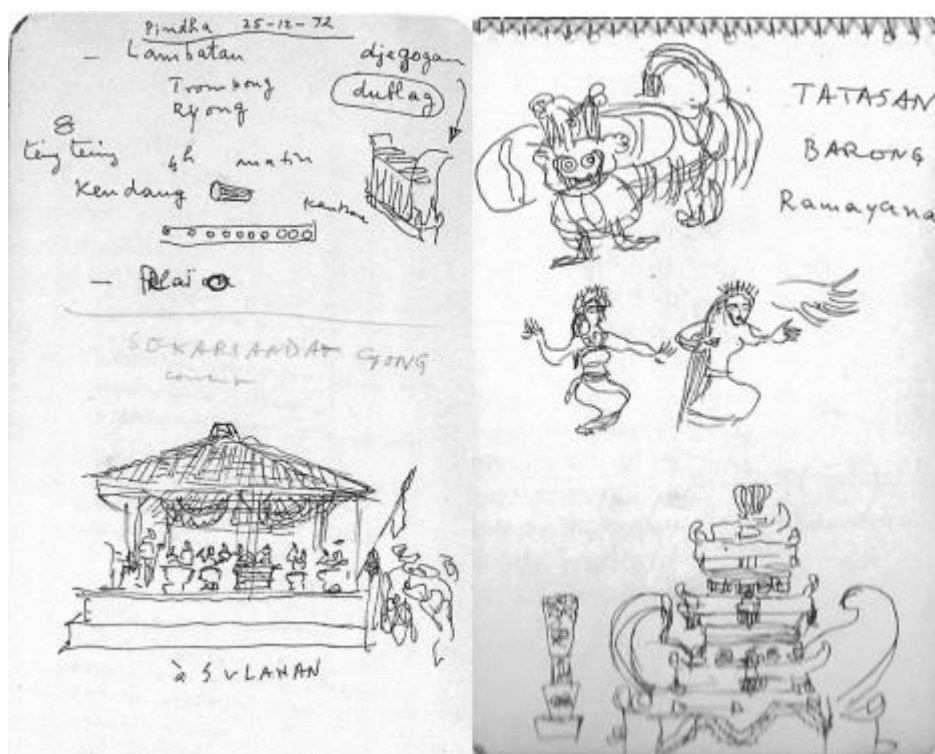 Pindha 25-12-72
– Lambatan
Trompong
Ryong
djegogan
dublag
8
ting ting
4h matin
Kendang
Kantlan
– Relai
SEKARSANDAT GONG
concert
à SULAHAN
TATASAN
BARONG
Ramayana